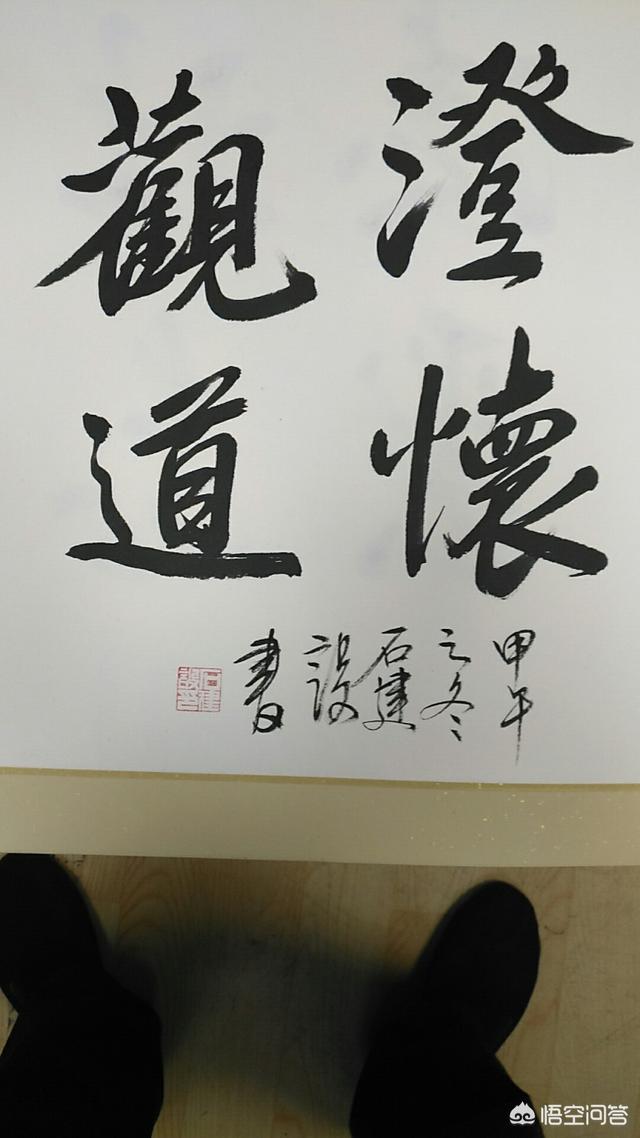 澄懷
觀道
甲午
之冬
石建
設
書
悟空问答